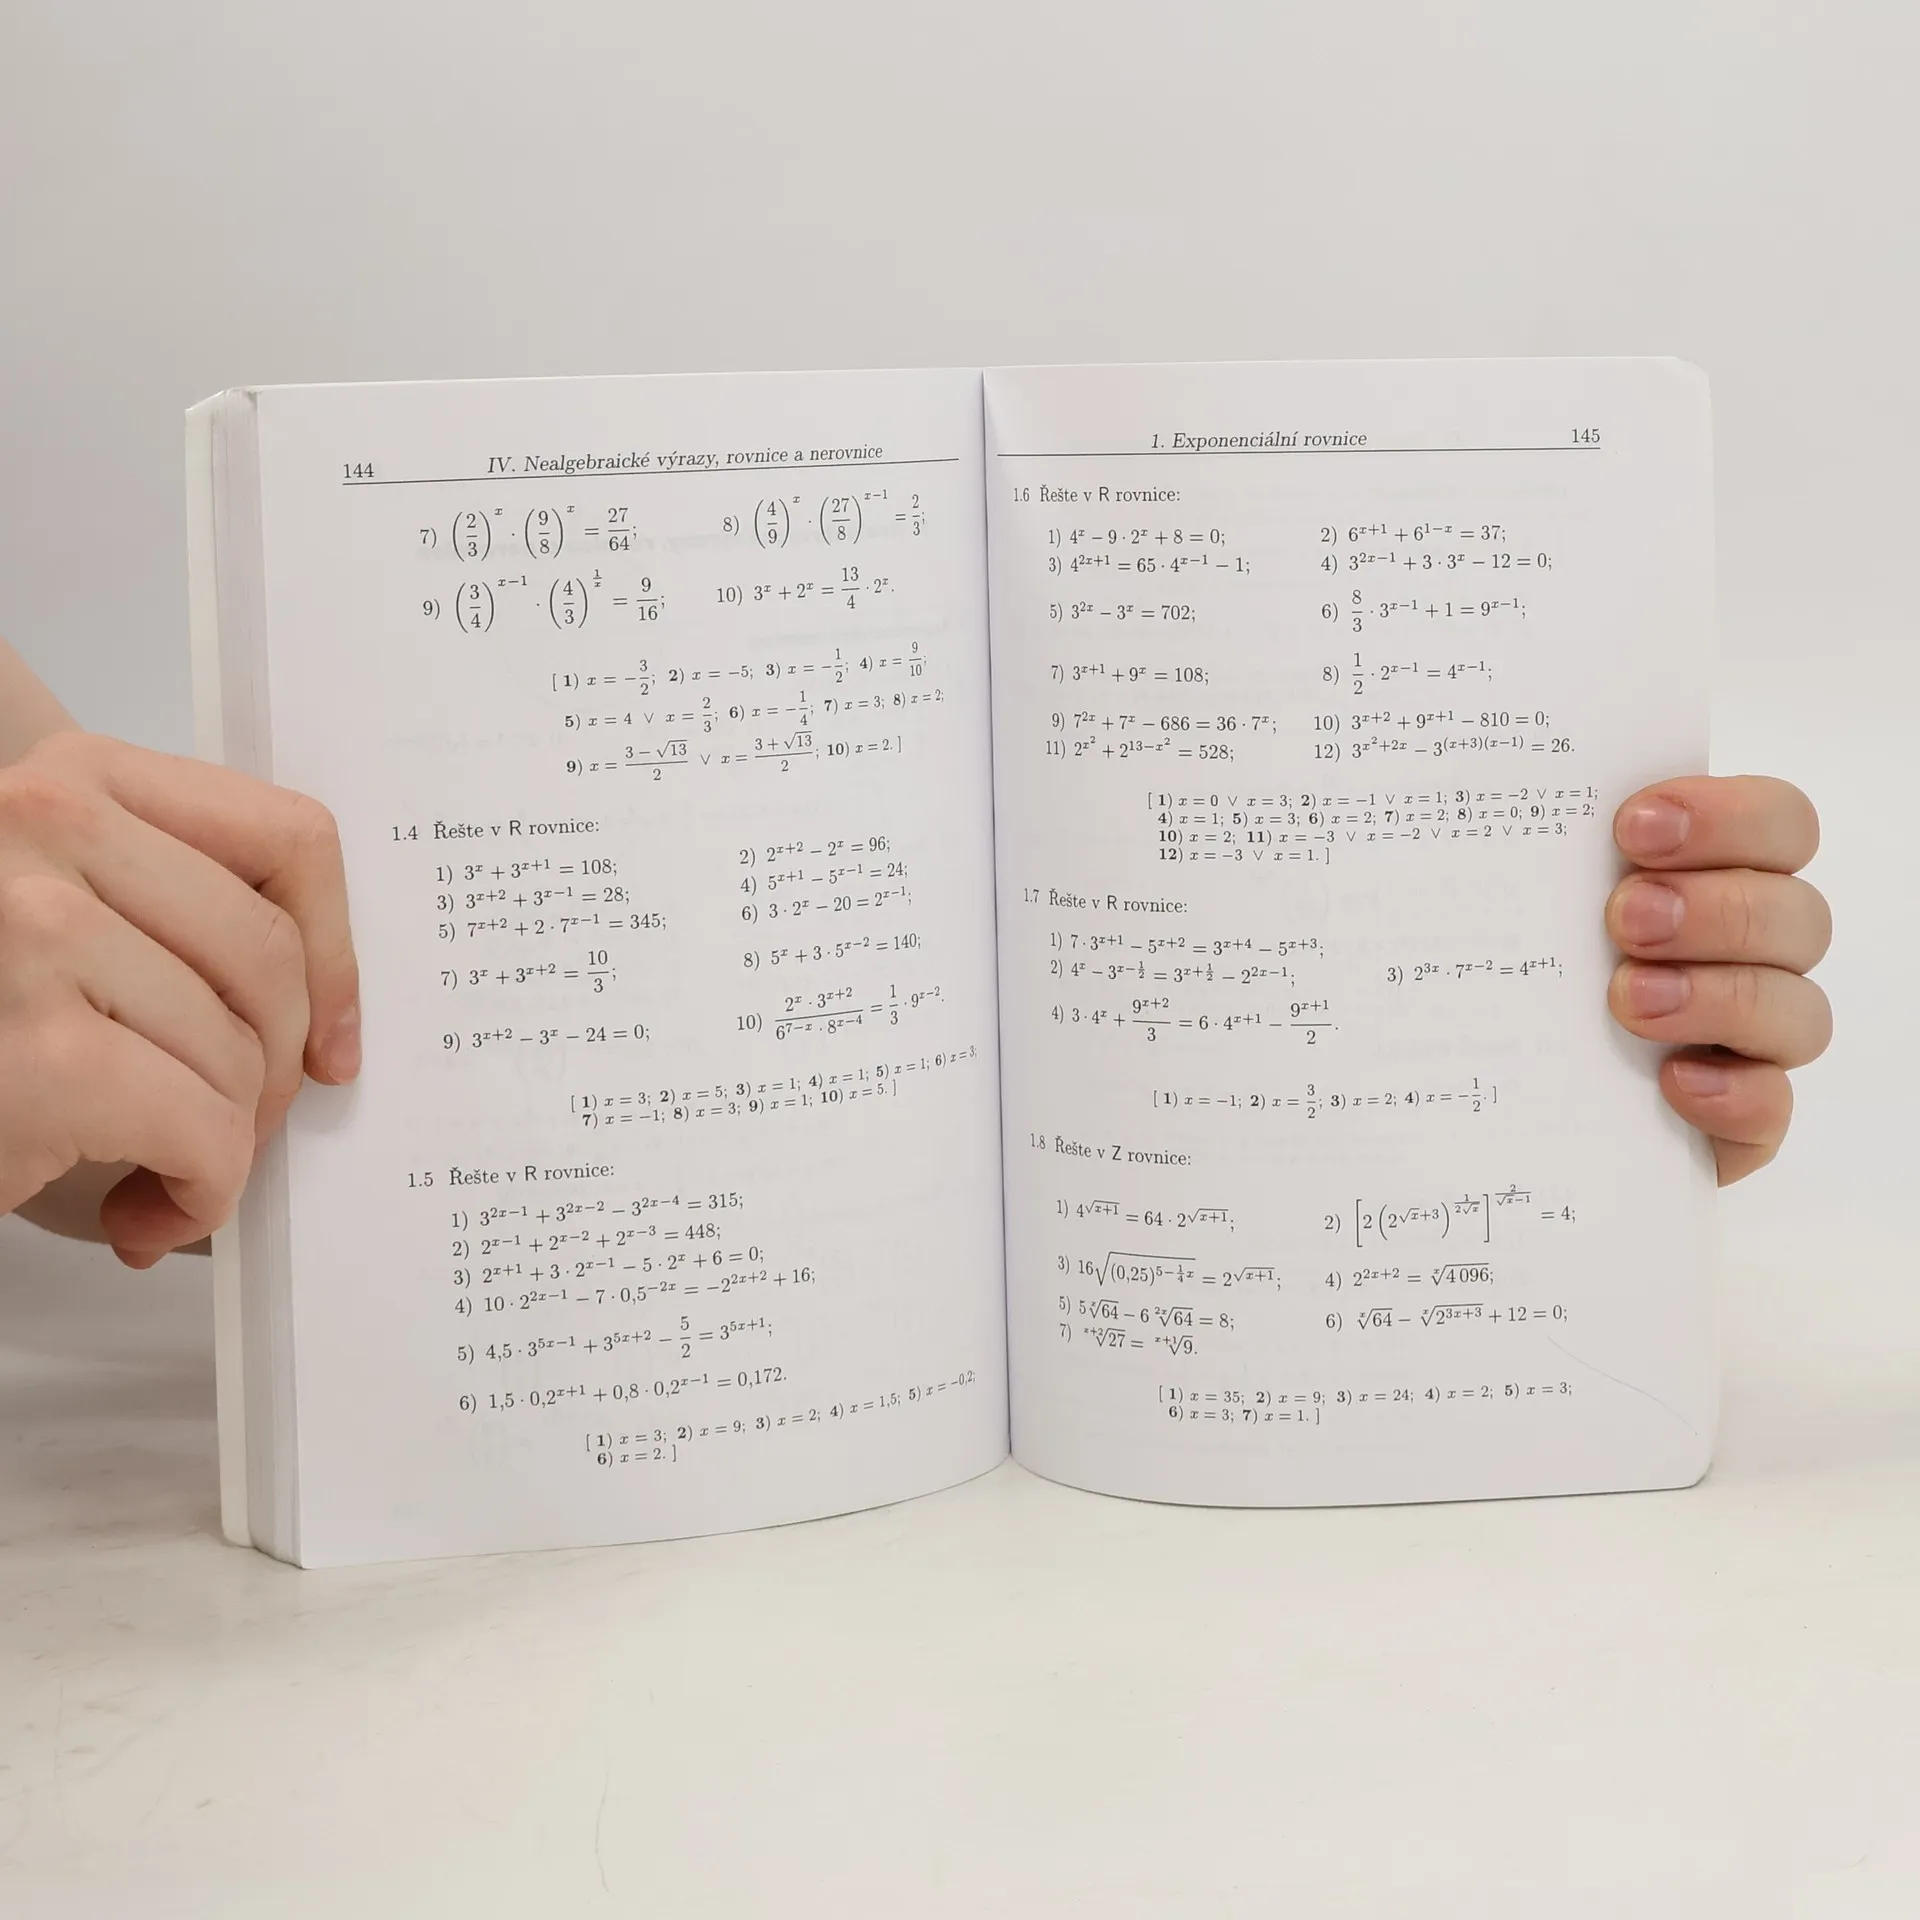 144 IV. Nealgebraické výrazy, rovnice a nerovnice
7) (2/3)^x · (9/8)^x = 27/64; 8) (4/9)^x · (27/8)^{x−1} = 2/3;
9) (3/4)^{x−1} · (4/3)^{1/x} = 9/16; 10) 3^x + 2^x = 13/4 · 2^x.
[ 1) x = −3/2; 2) x = −5; 3) x = −1/2; 4) x = 9/10;
5) x = 4 ∨ x = 2/3; 6) x = −1/4; 7) x = 3; 8) x = 2;
9) x = (3 − √13)/2 ∨ x = (3 + √13)/2; 10) x = 2. ]
1.4 Řešte v R rovnice:
1) 3^x + 3^{x+1} = 108; 2) 2^{x+2} − 2^x = 96;
3) 3^{x+2} + 3^{x−1} = 28; 4) 5^{x+1} − 5^{x−1} = 24;
5) 7^{x+2} + 2 · 7^{x−1} = 345; 6) 3 · 2^x − 20 = 2^{x−1};
7) 3^x + 3^{x+2} = 10/3; 8) 5^x + 3 · 5^{x−2} = 140;
9) 3^{x+2} − 3^x − 24 = 0; 10) (2^x · 3^{x+2})/(6^{7−x} · 8^{x−4}) = 1/3 · 9^{x−2}.
[ 1) x = 3; 2) x = 5; 3) x = 1; 4) x = 1; 5) x = 1; 6) x = 3;
7) x = −1; 8) x = 3; 9) x = 1; 10) x = 5. ]
1.5 Řešte v R rovnice:
1) 3^{2x−1} + 3^{2x−2} − 3^{2x−4} = 315;
2) 2^{x−1} + 2^{x−2} + 2^{x−3} = 448;
3) 2^{x+1} + 3 · 2^{x−1} − 5 · 2^x + 6 = 0;
4) 10 · 2^{2x−1} − 7 · 0,5^{−2x} = −2^{2x+2} + 16;
5) 4,5 · 3^{5x−1} + 3^{5x+2} − 5/2 = 3^{5x+1};
6) 1,5 · 0,2^{x+1} + 0,8 · 0,2^{x−1} = 0,172.
[ 1) x = 3; 2) x = 9; 3) x = 2; 4) x = 1,5; 5) x = −0,2;
6) x = 2. ]
1. Exponenciální rovnice 145
1.6 Řešte v R rovnice:
1) 4^x − 9 · 2^x + 8 = 0; 2) 6^{x+1} + 6^{1−x} = 37;
3) 4^{2x+1} = 65 · 4^{x−1} − 1; 4) 3^{2x−1} + 3 · 3^x − 12 = 0;
5) 3^{2x} − 3^x = 702; 6) 8/3 · 3^{x−1} + 1 = 9^{x−1};
7) 3^{x+1} + 9^x = 108; 8) 1/2 · 2^{x−1} = 4^{x−1};
9) 7^{2x} + 7^x − 686 = 36 · 7^x; 10) 3^{x+2} + 9^{x+1} − 810 = 0;
11) 2^{x^2} + 2^{13−x^2} = 528; 12) 3^{x^2+2x} − 3^{(x+3)(x−1)} = 26.
[ 1) x = 0 ∨ x = 3; 2) x = −1 ∨ x = 1; 3) x = −2 ∨ x = 1;
4) x = 1; 5) x = 3; 6) x = 2; 7) x = 2; 8) x = 0; 9) x = 2;
10) x = 2; 11) x = −3 ∨ x = −2 ∨ x = 2 ∨ x = 3;
12) x = −3 ∨ x = 1. ]
1.7 Řešte v R rovnice:
1) 7 · 3^{x+1} − 5^{x+2} = 3^{x+4} − 5^{x+3};
2) 4^x − 3^{x−1/2} = 3^{x+1/2} − 2^{2x−1}; 3) 2^{3x} · 7^{x−2} = 4^{x+1};
4) 3 · 4^x + 9^{x+2}/3 = 6 · 4^{x+1} − 9^{x+1}/2.
[ 1) x = −1; 2) x = 3/2; 3) x = 2; 4) x = −1/2. ]
1.8 Řešte v Z rovnice:
1) 4^{√(x+1)} = 64 · 2^{√(x+1)}; 2) [2 (2^{√x+3})^{1/(2√x)}]^{2/(√x−1)} = 4;
3) 16√((0,25)^{5−(1/4)x}) = 2^{√(x+1)}; 4) 2^{2x+2} = ˣ√(4 096);
5) 5 ˣ√64 − 6 ²ˣ√64 = 8; 6) ˣ√64 − ˣ√(2^{3x+3}) + 12 = 0;
7) ˣ⁺²√27 = ˣ⁺¹√9.
[ 1) x = 35; 2) x = 9; 3) x = 24; 4) x = 2; 5) x = 3;
6) x = 3; 7) x = 1. ]